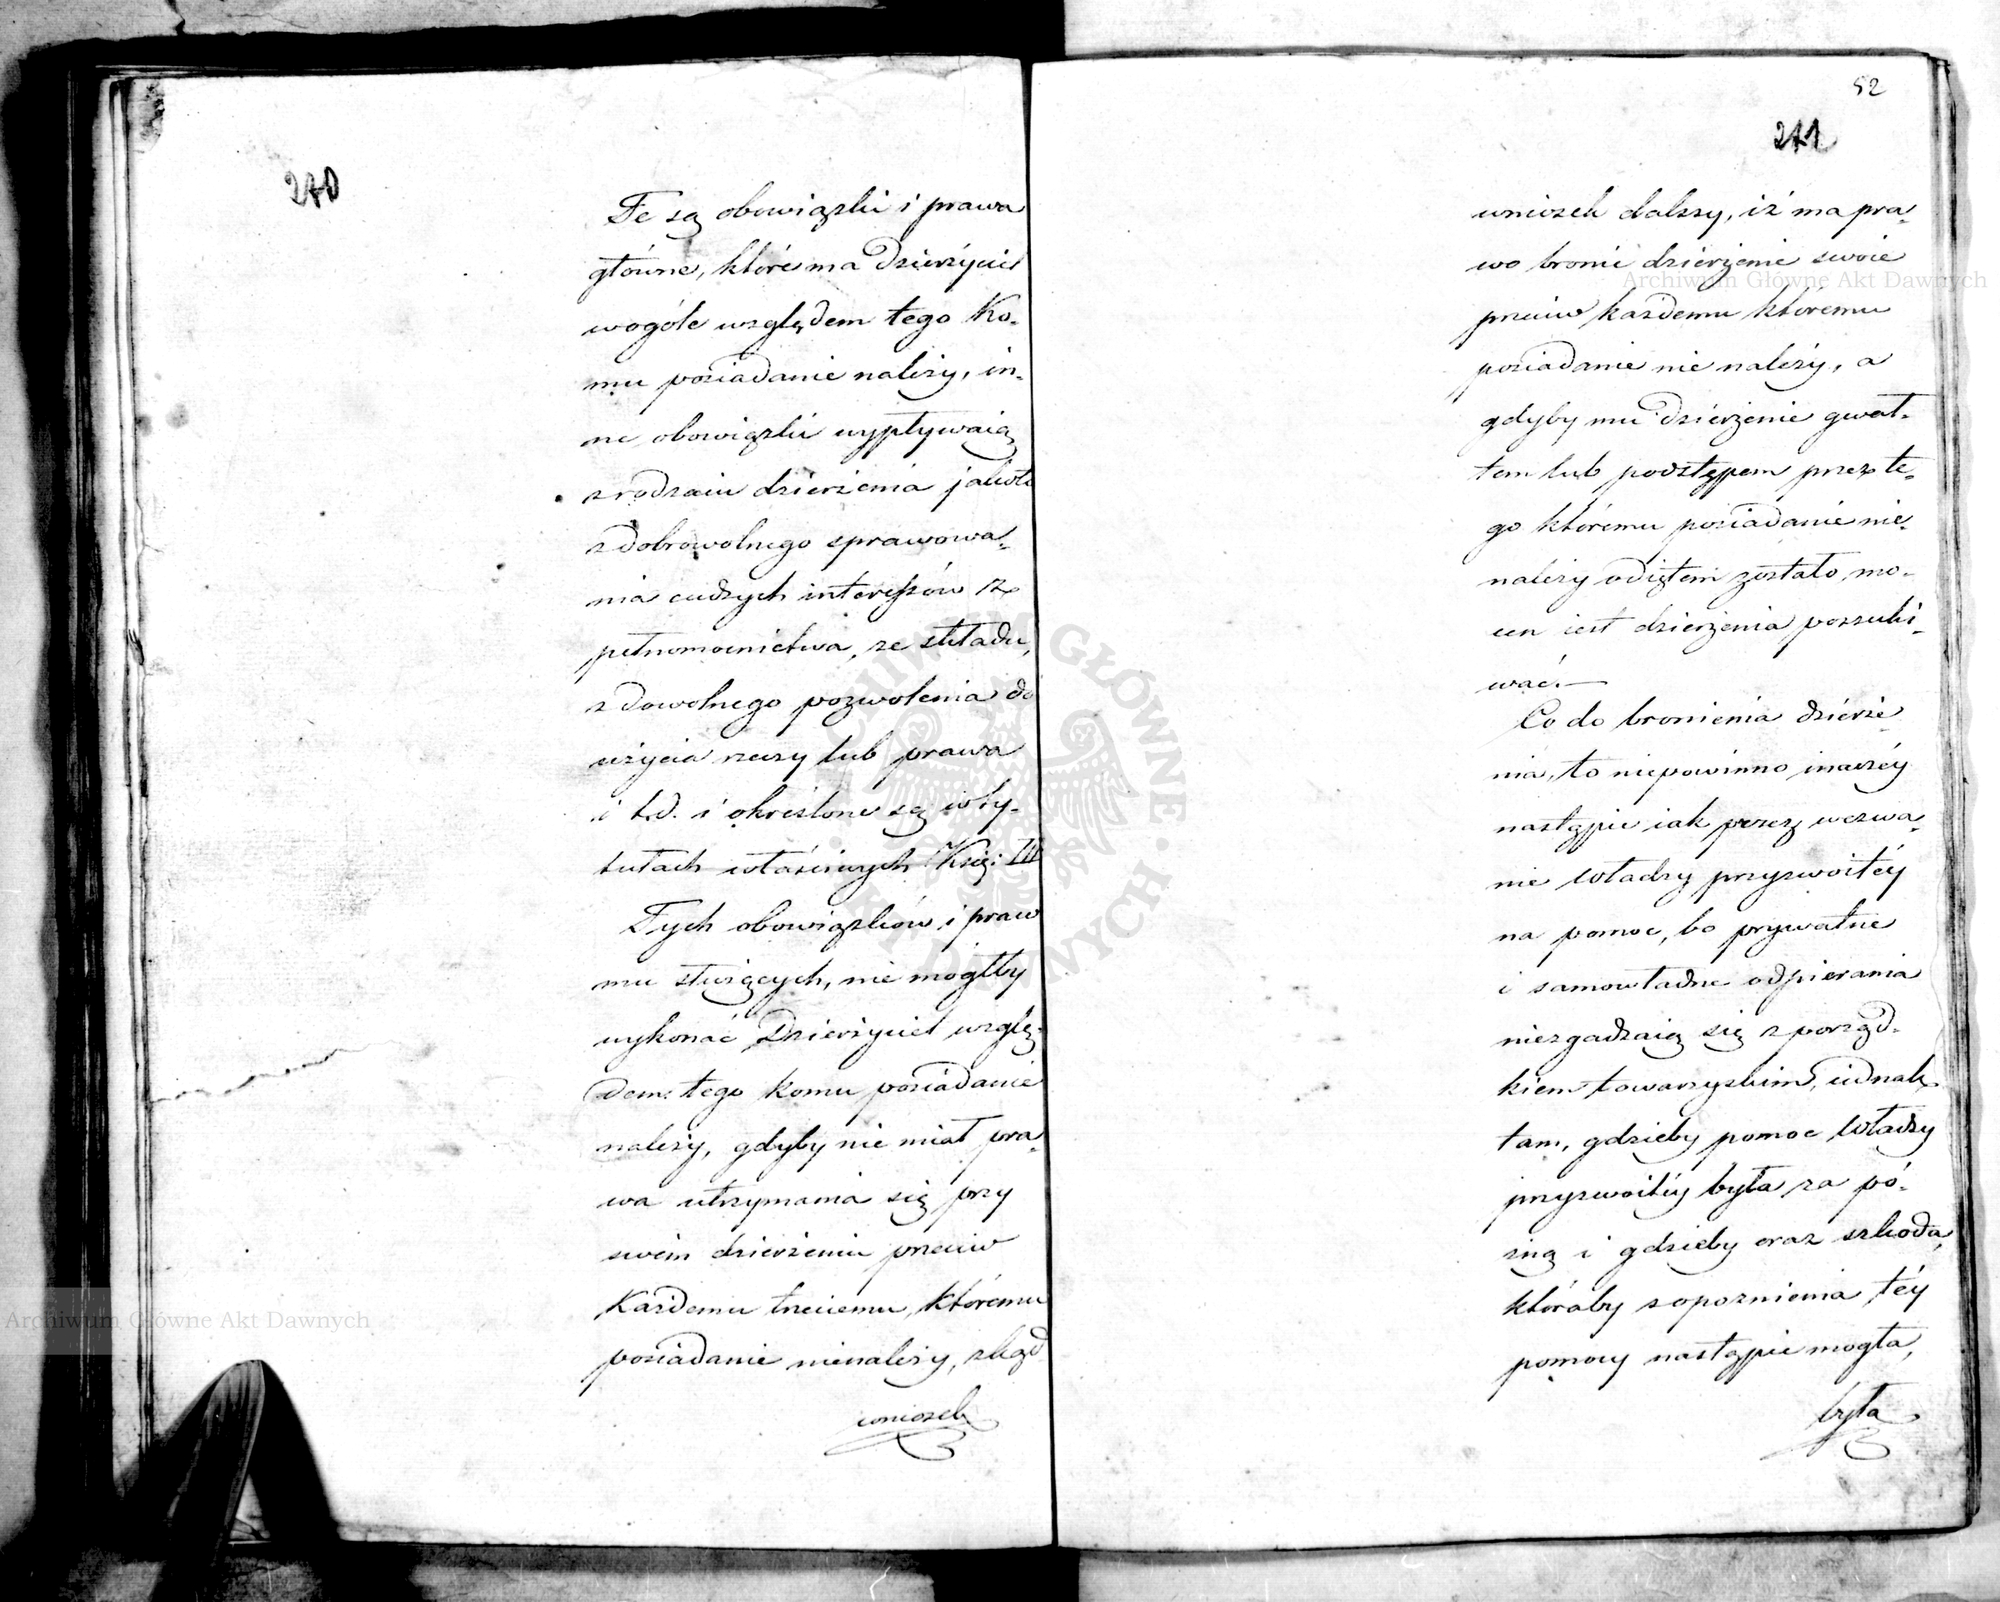 240
Te są obowiązki i prawa
główne, które ma Dzierżyciel
wogóle względem tego Ko-
mu posiadanie należy, in-
ne obowiązki wypływaią
z rodzaiu dzierżenia jakoto
z dobrowolnego sprawowa-
nia cudzych interessów z
pełnomocnictwa, ze składu,
z dowolnego pozwolenia do
użycia rzeczy lub prawa
i t.d. i określone są w ty-
tułach właściwych Księ: III
Tych obowiązków i praw
mu służących, nie mógłby
wykonać Dzierżyciel wzglę-
dem tego komu posiadanie
należy, gdyby nie miał pra-
wa utrzymania się przy
swém dzierżeniu przeciw
Każdemu trzeciemu, któremu
posiadanie nienależy, zkąd
wniosek
52
241
wniosek dalszy, iż ma pra-
wo bronić dzierżenie swoie
przeciw każdemu któremu
posiadanie nie należy, a
gdyby mu dzierżenie gwał-
tem lub podstępem przez te-
go któremu posiadanie nie-
należy odiętem zostało, mo-
cen iest dzierżenia poszuki-
wać.—
Co do bronienia dzierże-
nia, to niepowinno inaczéy
nastąpić iak przez wezwa-
nie Władzy przyzwoitéy
na pomoc, bo prywatne
i samowładne odpierania
niezgadzaią się z porząd-
kiem towarzyskim, iednak
tam, gdzieby pomoc Władzy
przyzwoitéy była za pó-
źną i gdzieby oraz szkoda,
któraby z opoznienia téy
pomocy nastąpić mogła,
była
Archiwum Główne Akt Dawnych
Archiwum Główne Akt Dawnych
ARCHIWUM GŁÓWNE AKT DAWNYCH